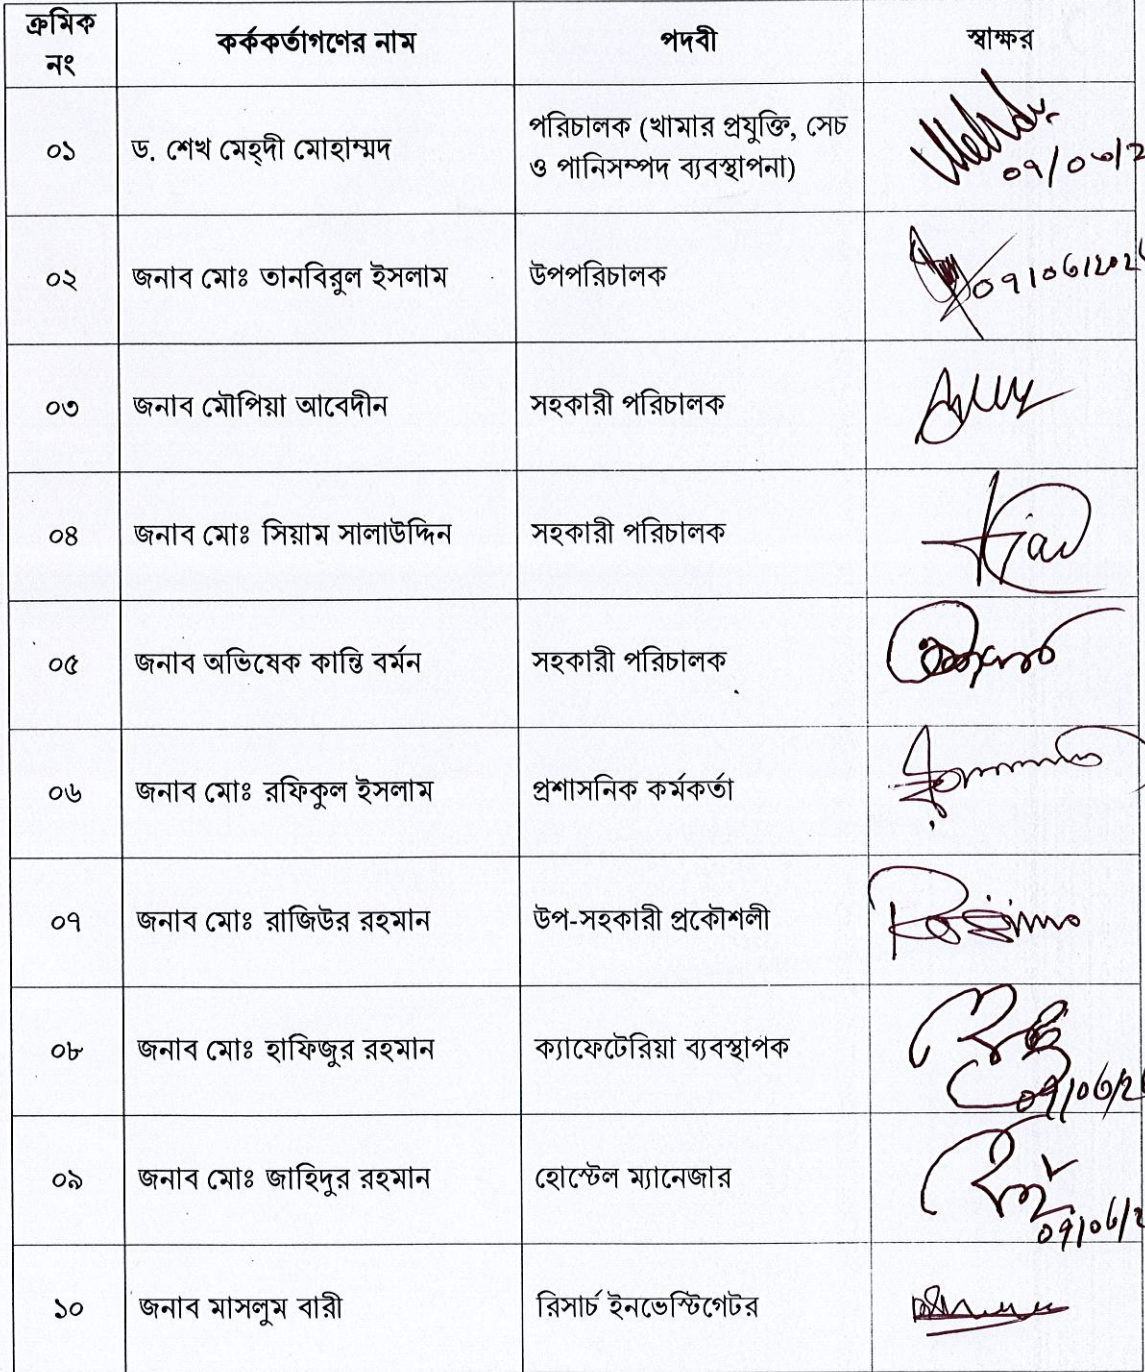 ক্রমিক নং | কর্ককর্তাগণের নাম | পদবী | স্বাক্ষর
০১ | ড. শেখ মেহ্‌দী মোহাম্মদ | পরিচালক (খামার প্রযুক্তি, সেচ
ও পানিসম্পদ ব্যবস্থাপনা)
০২ | জনাব মোঃ তানবিরুল ইসলাম | উপপরিচালক
০৩ | জনাব মৌপিয়া আবেদীন | সহকারী পরিচালক
০৪ | জনাব মোঃ সিয়াম সালাউদ্দিন | সহকারী পরিচালক
০৫ | জনাব অভিষেক কান্তি বর্মন | সহকারী পরিচালক
০৬ | জনাব মোঃ রফিকুল ইসলাম | প্রশাসনিক কর্মকর্তা
০৭ | জনাব মোঃ রাজিউর রহমান | উপ-সহকারী প্রকৌশলী
০৮ | জনাব মোঃ হাফিজুর রহমান | ক্যাফেটেরিয়া ব্যবস্থাপক
০৯ | জনাব মোঃ জাহিদুর রহমান | হোস্টেল ম্যানেজার
১০ | জনাব মাসলুম বারী | রিসার্চ ইনভেস্টিগেটর